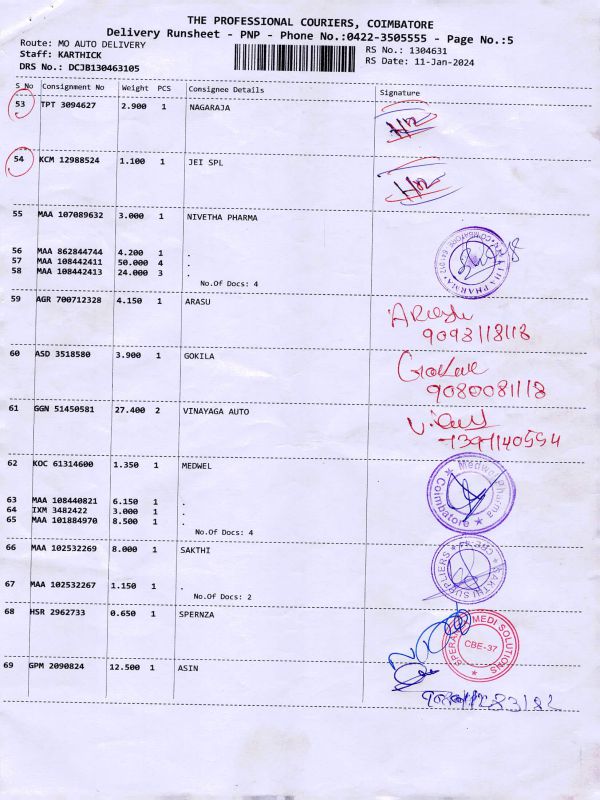 THE PROFESSIONAL COURIERS, COIMBATORE
Delivery Runsheet - PNP - Phone No.:0422-3505555 - Page No.:5
Route: MO AUTO DELIVERY
RS No.: 1304631
Staff: KARTHICK
RS Date: 11-Jan-2024
DRS No.: DCJB130463105
S No Consignment No Weight PCS Consignee Details Signature
53 TPT 3094627 2.900 1 NAGARAJA
54 KCM 12988524 1.100 1 JEI SPL
55 MAA 107089632 3.000 1 NIVETHA PHARMA
56 MAA 862844744 4.200 1 .
57 MAA 108442411 50.000 4 .
58 MAA 108442413 24.000 3 .
No.Of Docs: 4
59 AGR 700712328 4.150 1 ARASU
9093118118
60 ASD 3518580 3.900 1 GOKILA
9080081118
61 GGN 51450581 27.400 2 VINAYAGA AUTO
62 KOC 61314600 1.350 1 MEDWEL
Medwel Pharma
Coimbatore
63 MAA 108440821 6.150 1 .
64 IXM 3482422 3.000 1 .
65 MAA 101884970 8.500 1 .
No.Of Docs: 4
66 MAA 102532269 8.000 1 SAKTHI
SAKTHI SUPPLIERS
67 MAA 102532267 1.150 1 .
No.Of Docs: 2
68 HSR 2962733 0.650 1 SPERNZA
MEDI SOLUTIONS
CBE-37
69 GPM 2090824 12.500 1 ASIN